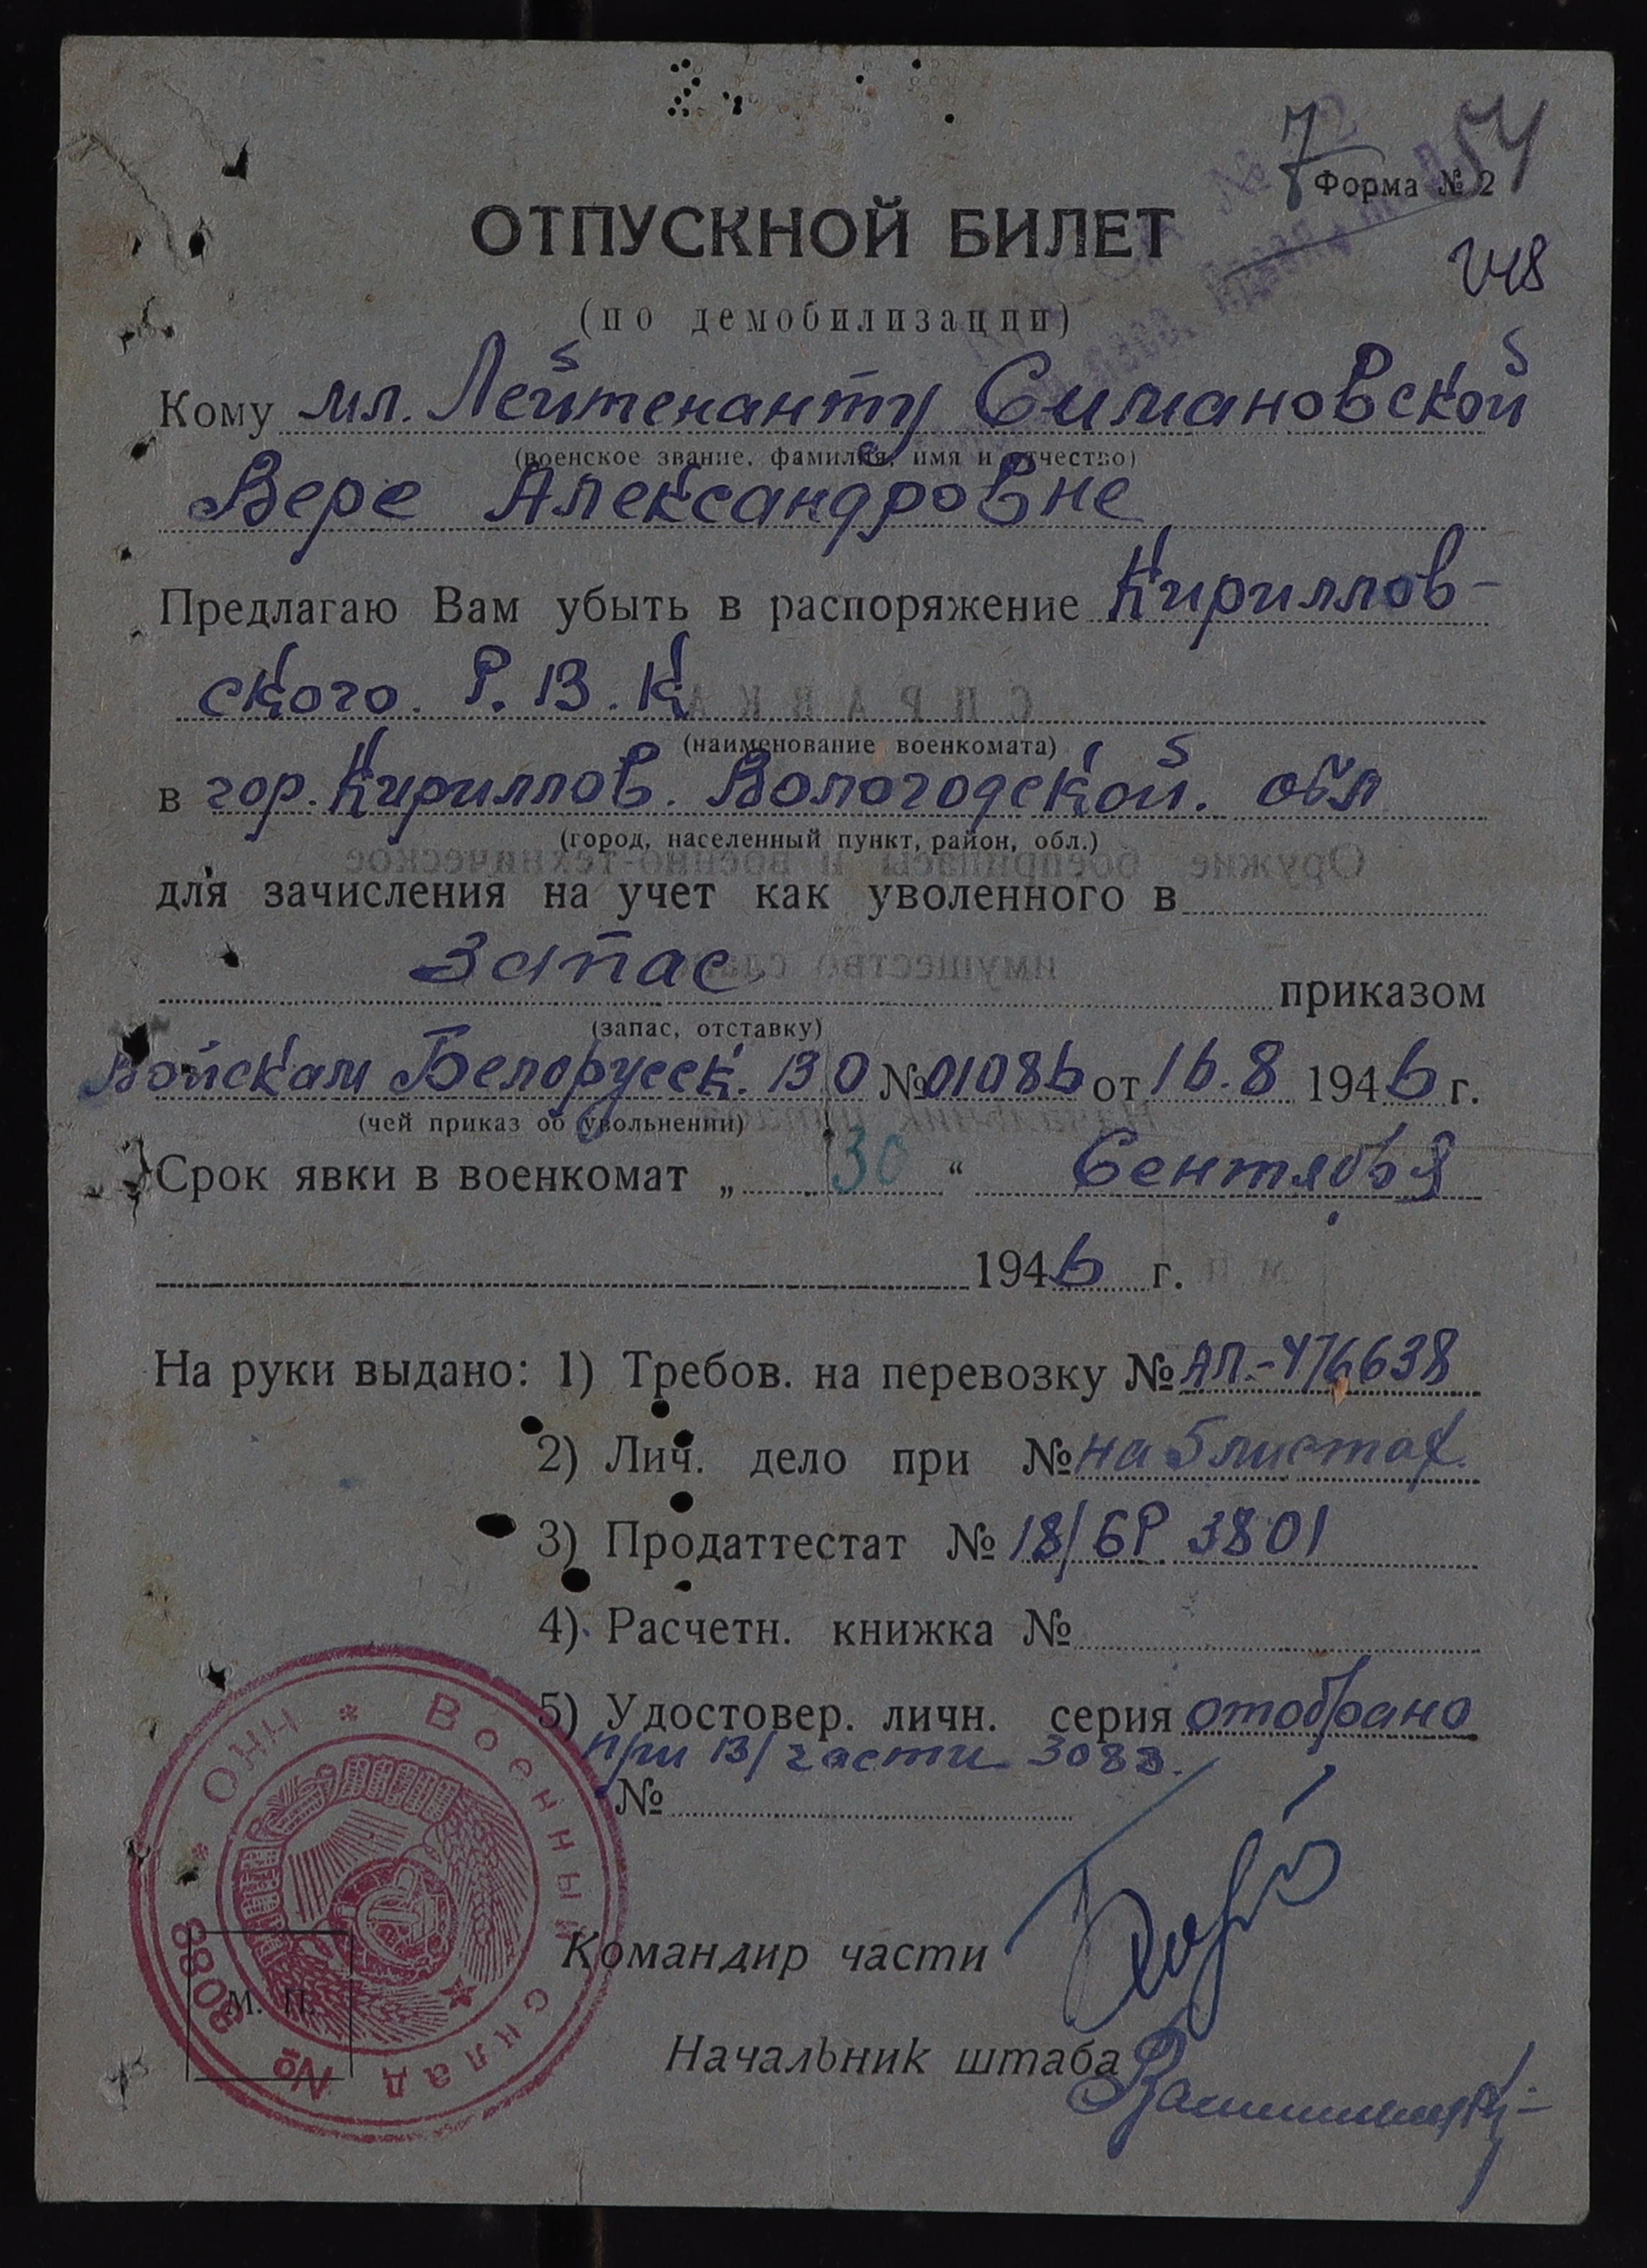 7 54
Форма № 2
ОТПУСКНОЙ БИЛЕТ
248
(по демобилизации)
Кому мл. Лейтенанту Симановской
(военское звание, фамилия, имя и отчество)
Вере Александровне
Предлагаю Вам убыть в распоряжение Кириллов-
ского. Р. В. К
(наименование военкомата)
в гор. Кириллов. Вологодской. обл
(город, населенный пункт, район, обл.)
для зачисления на учет как уволенного в
запас приказом
(запас, отставку)
Войскам Белорусск. ВО № 01086 от 16.8 1946 г.
(чей приказ об увольнении)
Срок явки в военкомат „ 30 “ Сентября
1946 г.
На руки выдано: 1) Требов. на перевозку № АП.-476638
2) Лич. дело при № на 5 листах.
3) Продаттестат № 18/БР 3801
4) Расчетн. книжка №
5) Удостовер. личн. серия отобрано
при в/части 3083.
№
Командир части
М. П.
Начальник штаба
Военный склад № 3083